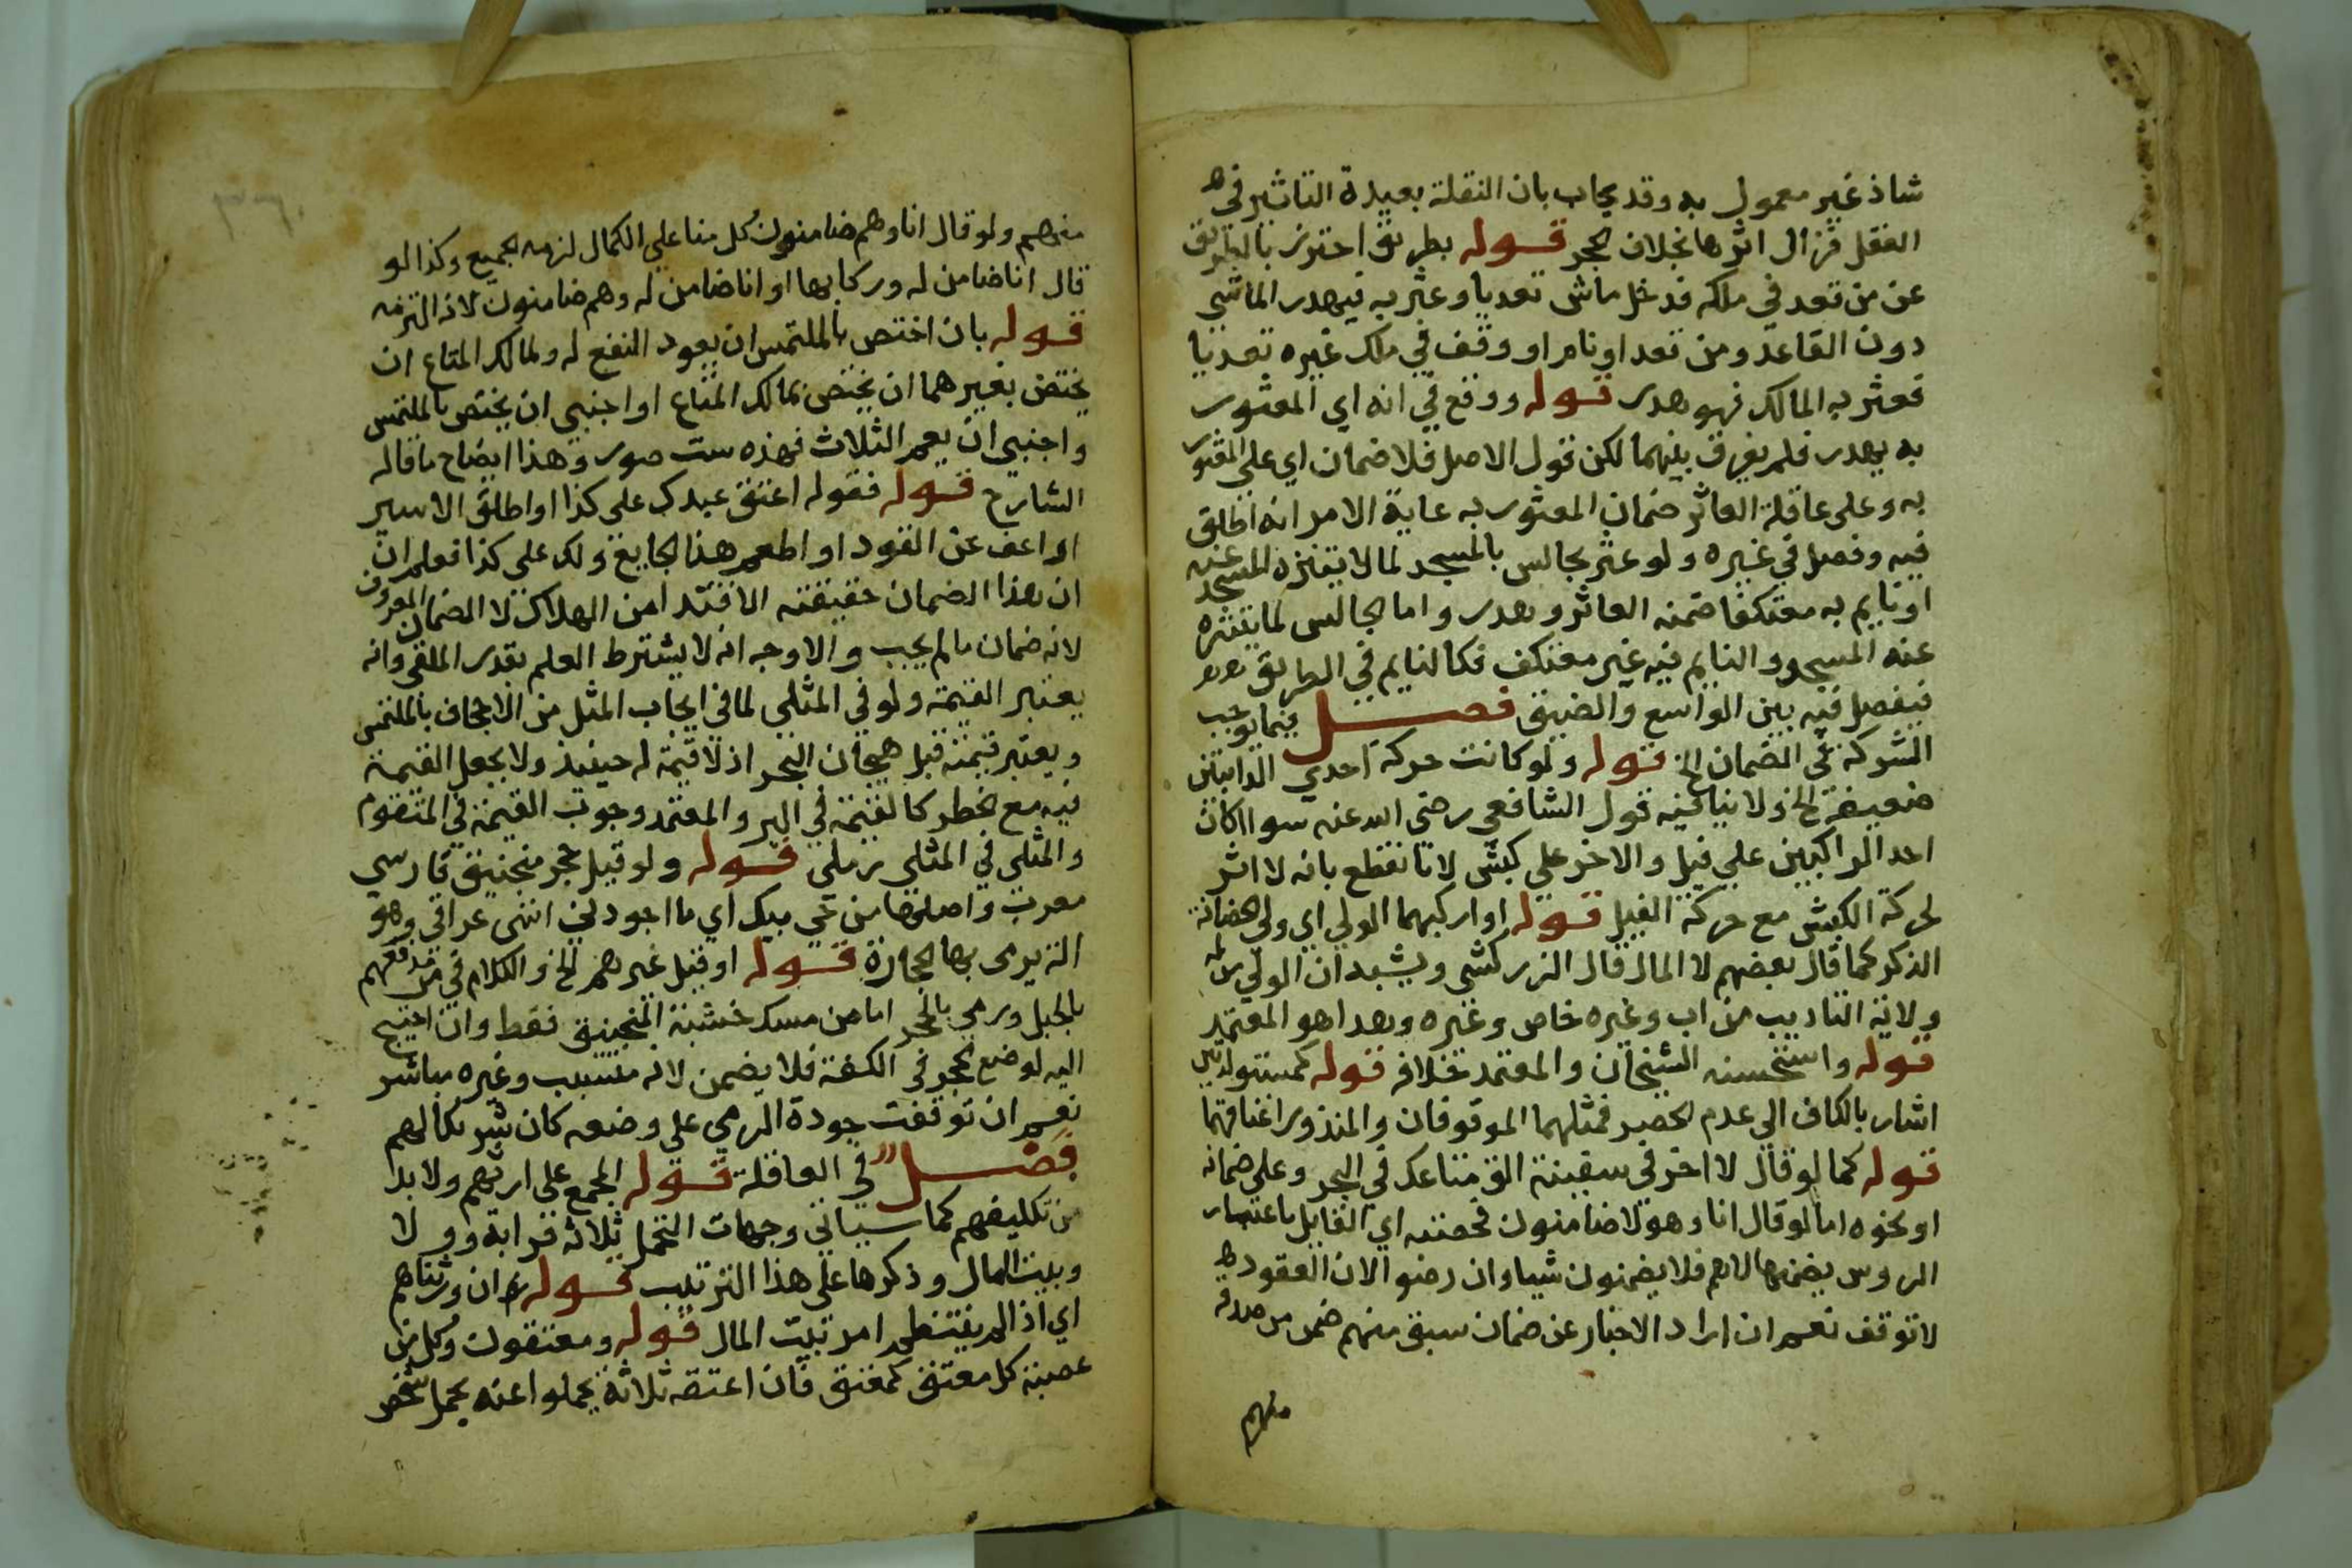 شاذ غير معمول به وقد يجاب بان النقلة بعيدة التاثير في
العقل فزال اثرها بخلاف الحجر قوله بطريق احترز بالطريق
عن من قعد في ملكه فدخل ماش تعديا وعثر به فيهدر الماشي
دون القاعد ومن قعد او نام او وقف في ملك غيره تعديا
فعثر به المالك فهو هدر قوله ووقع في انه اي المعثور
به يهدر فلم يفرق بينهما لكن قول الاصل فلا ضمان اي على المعثور
به وعلى عاقلة العاثر ضمان المعثور به غاية الامر انه اطلق
فيه وفصل في غيره ولو عثر بجالس بالمسجد لما لا يتنزه المسجد عنه
او نايم به معتكفا ضمنه العاثر وهدر واما الجالس لما يتنزه
عنه المسجد والنايم فيه غير معتكف فكالنايم في الطريق
فيفصل فيه بين الواسع والضيق فصل فيما يوجب
الشركة في الضمان الخ قوله ولو كانت حركة احدى الدابتين
ضعيفة الخ ولا ينافيه قول الشافعي رضى الله عنه سوا اكان
احد الراكبين على فيل والاخر على كبش لانا نقطع بانه لا اثر
لحركة الكبش مع حركة الفيل قوله او اركبهما الولي اي ولي الحضانة
الذكر كما قال بعضهم لا المال قال الزركشى ويشبه ان الولي من له
ولاية التاديب من اب وغيره خاص وغيره وهذا هو المعتمد
قوله واستحسنه الشيخان والمعتمد خلافه قوله كمستولدتين
اشار بالكاف الى عدم الحصر فمثلهما الموقوفان والمنذور اعتاقهما
قوله كما لو قال لاخر في سفينة الق متاعك في البحر وعلي ضمانه
او نحوه اما لو قال انا وهولا ضامنون فحصته اي القايل باعتبار
الروس يضمنها لا هم فلا يضمنون شيا وان رضوا لان العقود
لا توقف نعم ان اراد الاخبار عن ضمان سبق منهم ضمن من صدقه
منهم
منهم ولو قال انا وهم ضامنون كل منا على الكمال لزمه الجميع وكذا لو
قال انا ضامن له وركابها او انا ضامن له وهم ضامنون لانه التزمه
قوله بان اختص بالملتمس ان يعود النفع له ولمالك المتاع ان
يختص بغيرهما ان يختص بمالك المتاع او اجنبي ان يختص بالملتمس
واجنبي ان يعم الثلاث فهذه ست صور وهذا ايضاح ما قاله
الشارح قوله فقوله اعتق عبدك على كذا او اطلق الاسير
او اعف عن القود او اطعم هذا الجايع ولك على كذا فعلم ان
ان هذا الضمان حقيقته الافتدا من الهلاك لا الضمان المعروف
لانه ضمان ما لم يجب والاوجه انه لا يشترط العلم بقدر الملقى وانه
يعتبر القيمة ولو في المثلي لما في ايجاب المثل من الاجحاف بالملتمس
ويعتبر قيمته قبل هيجان البحر اذ لا قيمة له حينيذ ولا يجعل القيمة
فيه مع الخطر كالقيمة في البر والمعتمد وجوب القيمة في المتقوم
والمثلى في المثلى رملى قوله ولو قيل حجر منجنيق فارسي
معرب واصلها من جي بيك اي ما اجودلي انتهى عراقي وهو
الة يرمى بها الحجارة قوله او قتل غيرهم الخ والكلام في من مدفعهم
بالحبل ورمي بالحجر اما من مسك خشبة المنجنيق فقط وان احتيج
اليه لوضع الحجر في الكفة فلا يضمن لانه متسبب وغيره مباشر
نعم ان توقفت جودة الرمي على وضعه كان شريكا لهم
فصل في العاقلة قوله المجمع على ارثهم ولا بد
من تكليفهم كما سياتي وجهات التحمل ثلاثة قرابة وولا
وبيت المال وذكرها على هذا الترتيب قوله ان ورثناهم
اي اذا لم ينتظم امر بيت المال قوله ومعتقون وكل من
عصبة كل معتق كمعتق فان اعتقه ثلاثة تحملوا عنه تحمل شخص